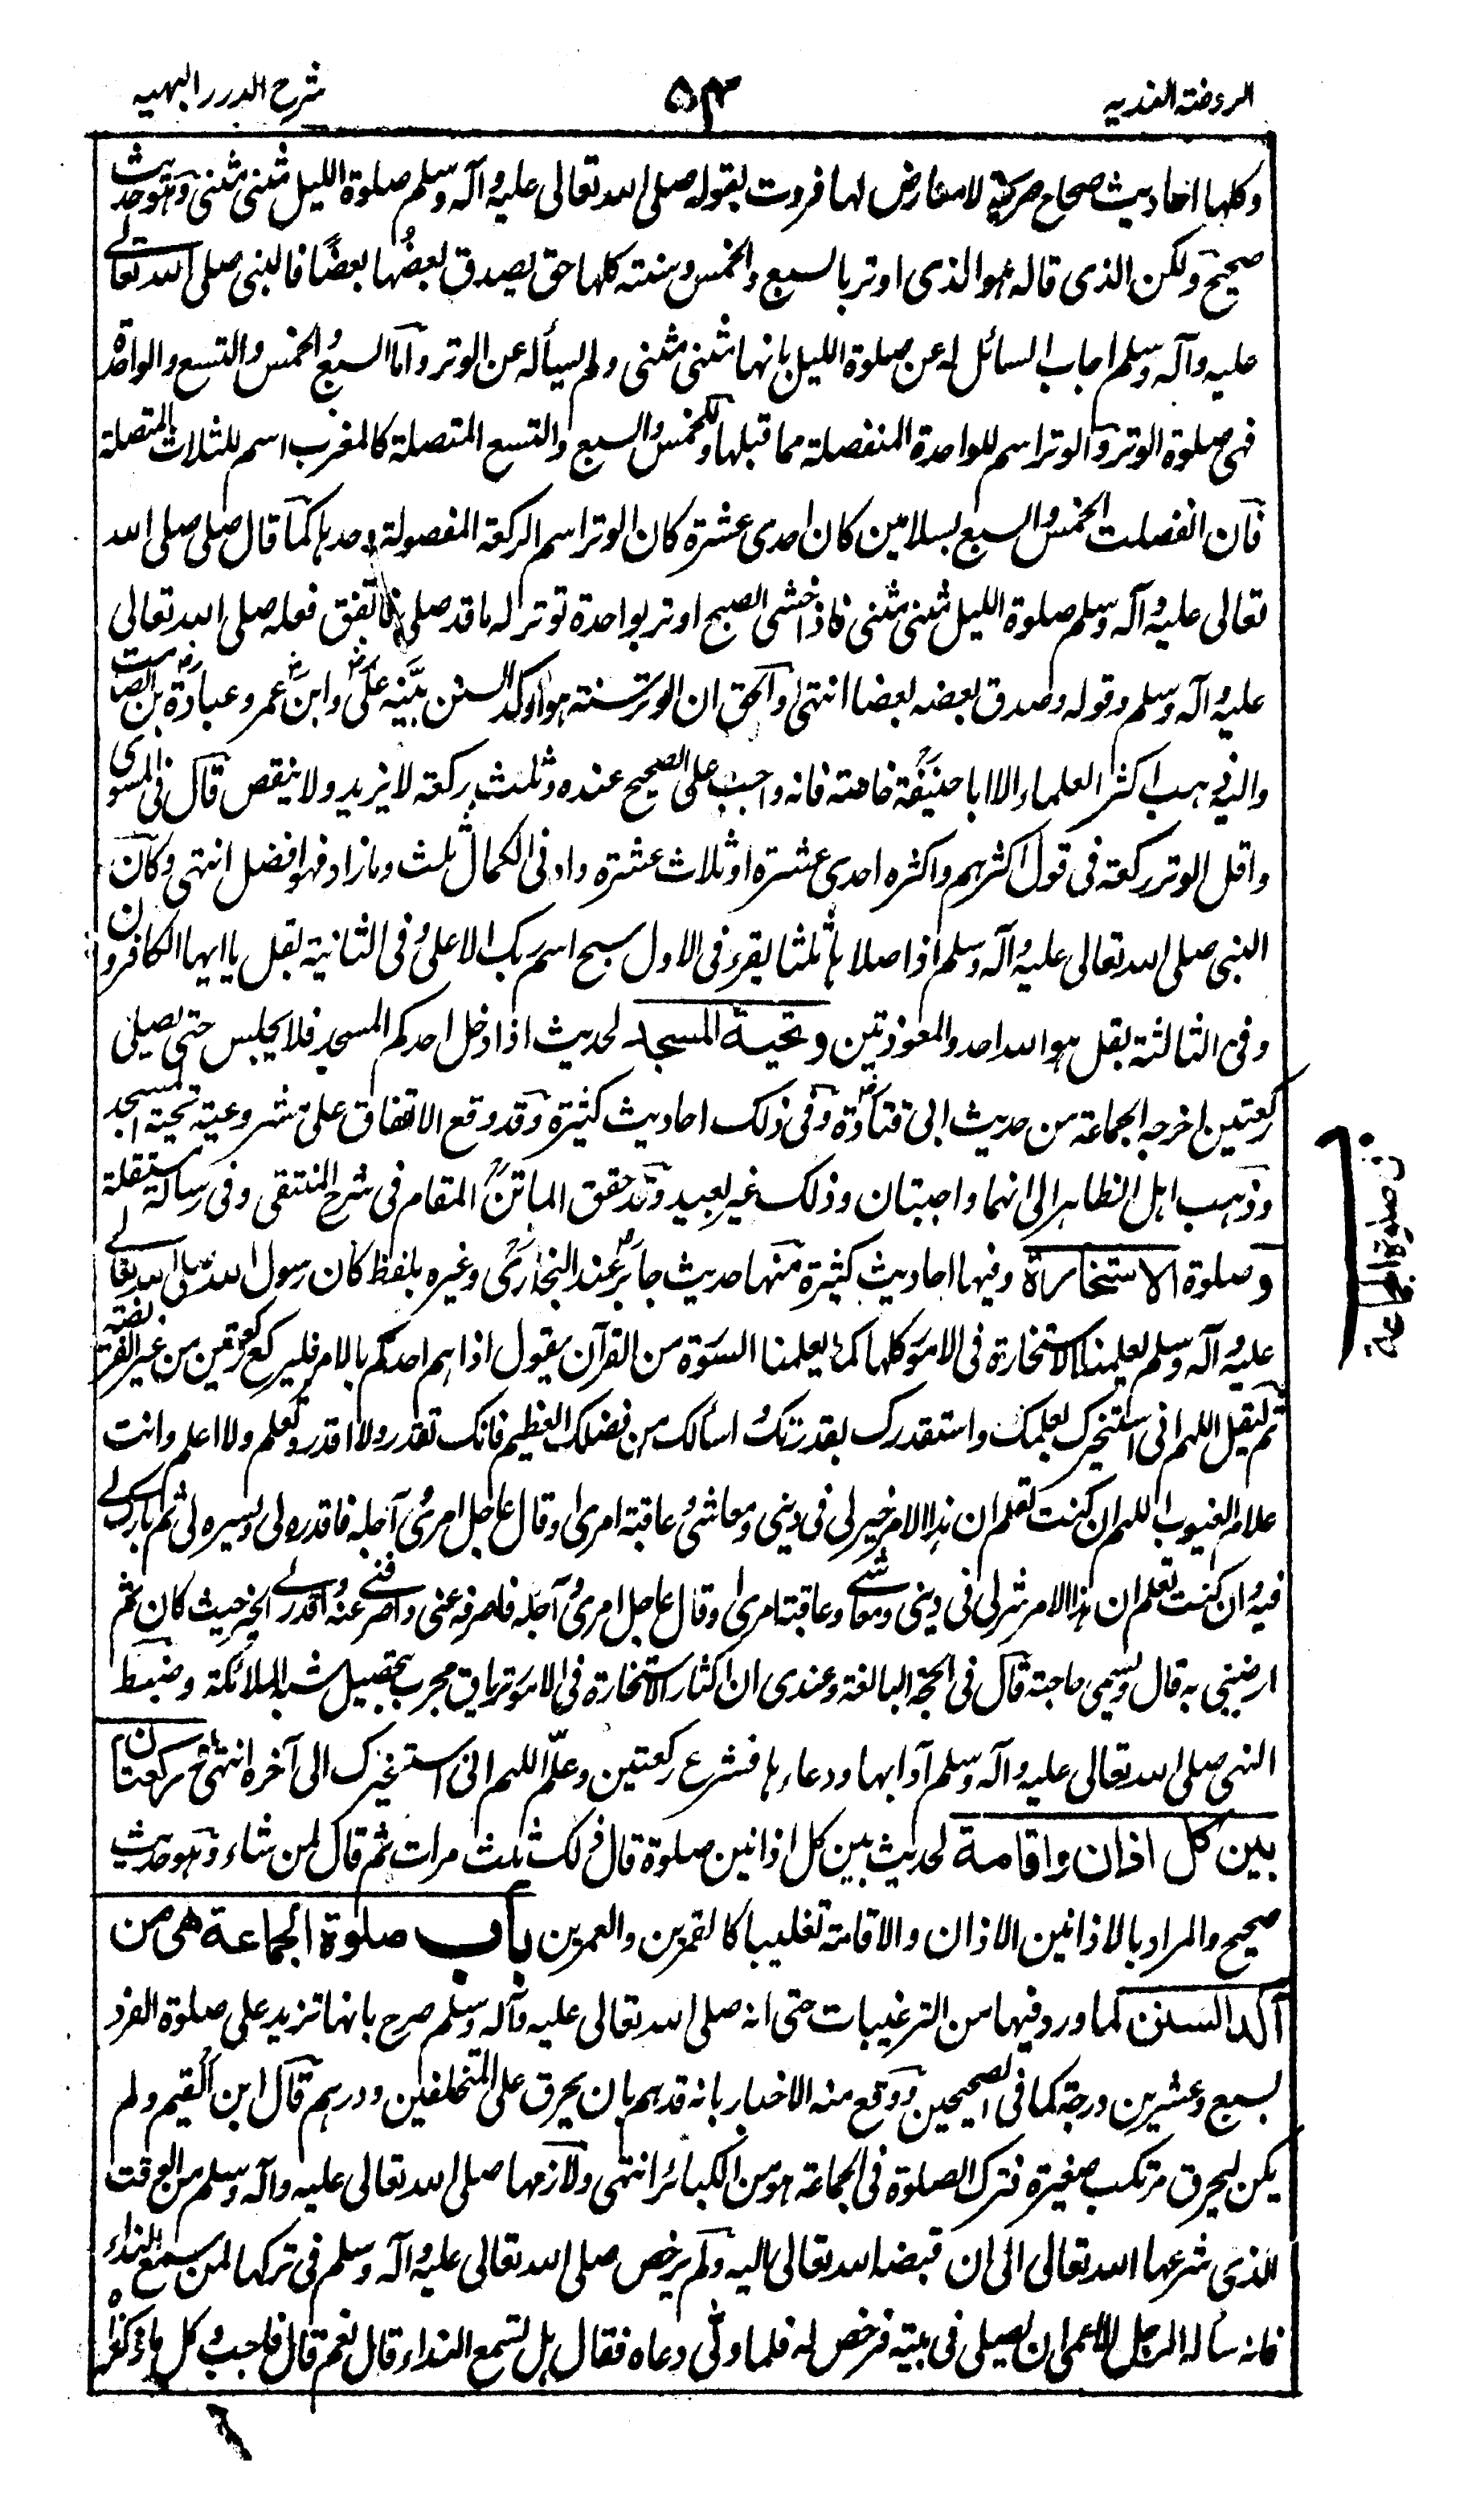 الروضة الندية
۵۳
شرح الدرر البهية
وكلها احاديث صحاح صريحة لا معارض لها فردت بقوله صلى الله تعالى عليه وآله وسلم صلوة الليل مثنى مثنى وهو حديث
صحيح ولكن الذى قاله هو الذى اوتر بالسبع والخمس وسنته كلها حق يصدق بعضها بعضًا فالنبى صلى الله تعالى
عليه وآله وسلم اجاب السائل له عن صلوة الليل بانها مثنى مثنى ولم يسأله عن الوتر واما السبع والخمس والتسع والواحدة
فهى صلوة الوتر والوتر اسم للواحدة المنفصلة مما قبلها وللخمس والسبع والتسع المتصلة كالمغرب اسم للثلاث المتصلة
فان انفصلت الخمس والسبع بسلامين كان احدى عشرة كان الوتر اسم الركعة المفصولة وحدها كما قال صلى صلى الله
تعالى عليه وآله وسلم صلوة الليل مثنى مثنى فاذا خشى الصبح اوتر بواحدة توتر له ما قد صلى فاتفق فعله صلى الله تعالى
عليه وآله وسلم وقوله وصدق بعضه بعضا انتهى والحق ان الوتر سنة هو اوكد السنن بيّنه علىؓ وابن عمرؓ وعبادة بن الصامت
واليه ذهب اكثر العلماء الا ابا حنيفة خاصة فانه واجب على الصحيح عنده وثلث ركعة لا يزيد ولا ينقص قال فى المسوى
واقل الوتر ركعة فى قول اكثرهم واكثره احدى عشرة او ثلاث عشرة وادنى الكمال ثلث وما زاد فهو افضل انتهى وكان
النبى صلى الله تعالى عليه وآله وسلم اذا صلاها ثلثا يقرء فى الاول سبح اسم ربك الاعلى وفى الثانية بقل يا ايها الكافرون
وفى الثالثة بقل هو الله احد والمعوذتين وتحية المسجد لحديث اذا دخل احدكم المسجد فلا يجلس حتى يصلى
ركعتين اخرجه الجماعة من حديث ابى قتادةؓ وفى ذلك احاديث كثيرة وقد وقع الاتفاق على مشروعية تحية المسجد
وذهب اهل الظاهر الى انهما واجبتان وذلك غير بعيد وقد حقق الماتن المقام فى شرح المنتقى وفى رسالة مستقلة
وصلوة الاستخارة وفيها احاديث كثيرة منها حديث جابرؓ عند البخارى وغيره بلفظ كان رسول الله صلى الله تعالى
عليه وآله وسلم يعلمنا الاستخارة فى الامور كلها كما يعلمنا السورة من القرآن يقول اذا هم احدكم بالامر فليركع ركعتين من غير الفريضة
ثم ليقل اللهم انى استخيرك بعلمك واستقدرك بقدرتك واسألك من فضلك العظيم فانك تقدر ولا اقدر وتعلم ولا اعلم وانت
علام الغيوب اللهم ان كنت تعلم ان هذا الامر خير لى فى دينى ومعاشى وعاقبة امرى او قال عاجل امرى وآجله فاقدره لى ويسره لى ثم بارك لى
فيه وان كنت تعلم ان هذا الامر شر لى فى دينى ومعاشى وعاقبة امرى او قال عاجل امرى وآجله فاصرفه عنى واصرفنى عنه واقدر لى الخير حيث كان ثم
ارضنى به قال ويسمى حاجته قال فى الحجة البالغة وعندى ان اكثار الاستخارة فى الامور ترياق مجرب لتحصيل شبه الملائكة وضبط
النبى صلى الله تعالى عليه وآله وسلم آدابها ودعاءها فشرع ركعتين وعلّم اللهم انى استخيرك الى آخره انتهى وركعتان
بين كل اذان واقامة لحديث بين كل اذانين صلوة قال ذلك ثلث مرات ثم قال لمن شاء وهو حديث
صحيح والمراد بالاذانين الاذان والاقامة تغليبا كالقمرين والعمرين باب صلوة الجماعة هى من
آكد السنن لما ورد فيها من الترغيبات حتى انه صلى الله تعالى عليه وآله وسلم صرح بانها تزيد على صلوة الفرد
بسبع وعشرين درجة كما فى الصحيحين ووقع منه الاخبار بانه قد هم بان يحرق على المتخلفين دورهم قال ابن القيم ولم
يكن ليحرق مرتكب صغيرة فترك الصلوة فى الجماعة هو من الكبائر انتهى ولازمها صلى الله تعالى عليه وآله وسلم من الوقت
الذى شرعها الله تعالى الى ان قبضه الله تعالى اليه ولم يرخص صلى الله تعالى عليه وآله وسلم فى تركها لمن سمع النداء
فانه سأله الرجل الاعمى ان يصلى فى بيته فرخص له فلما ولى دعاه فقال هل تسمع النداء قال نعم قال فاجب وكل ما ذكرناه
صلوة الجماعة